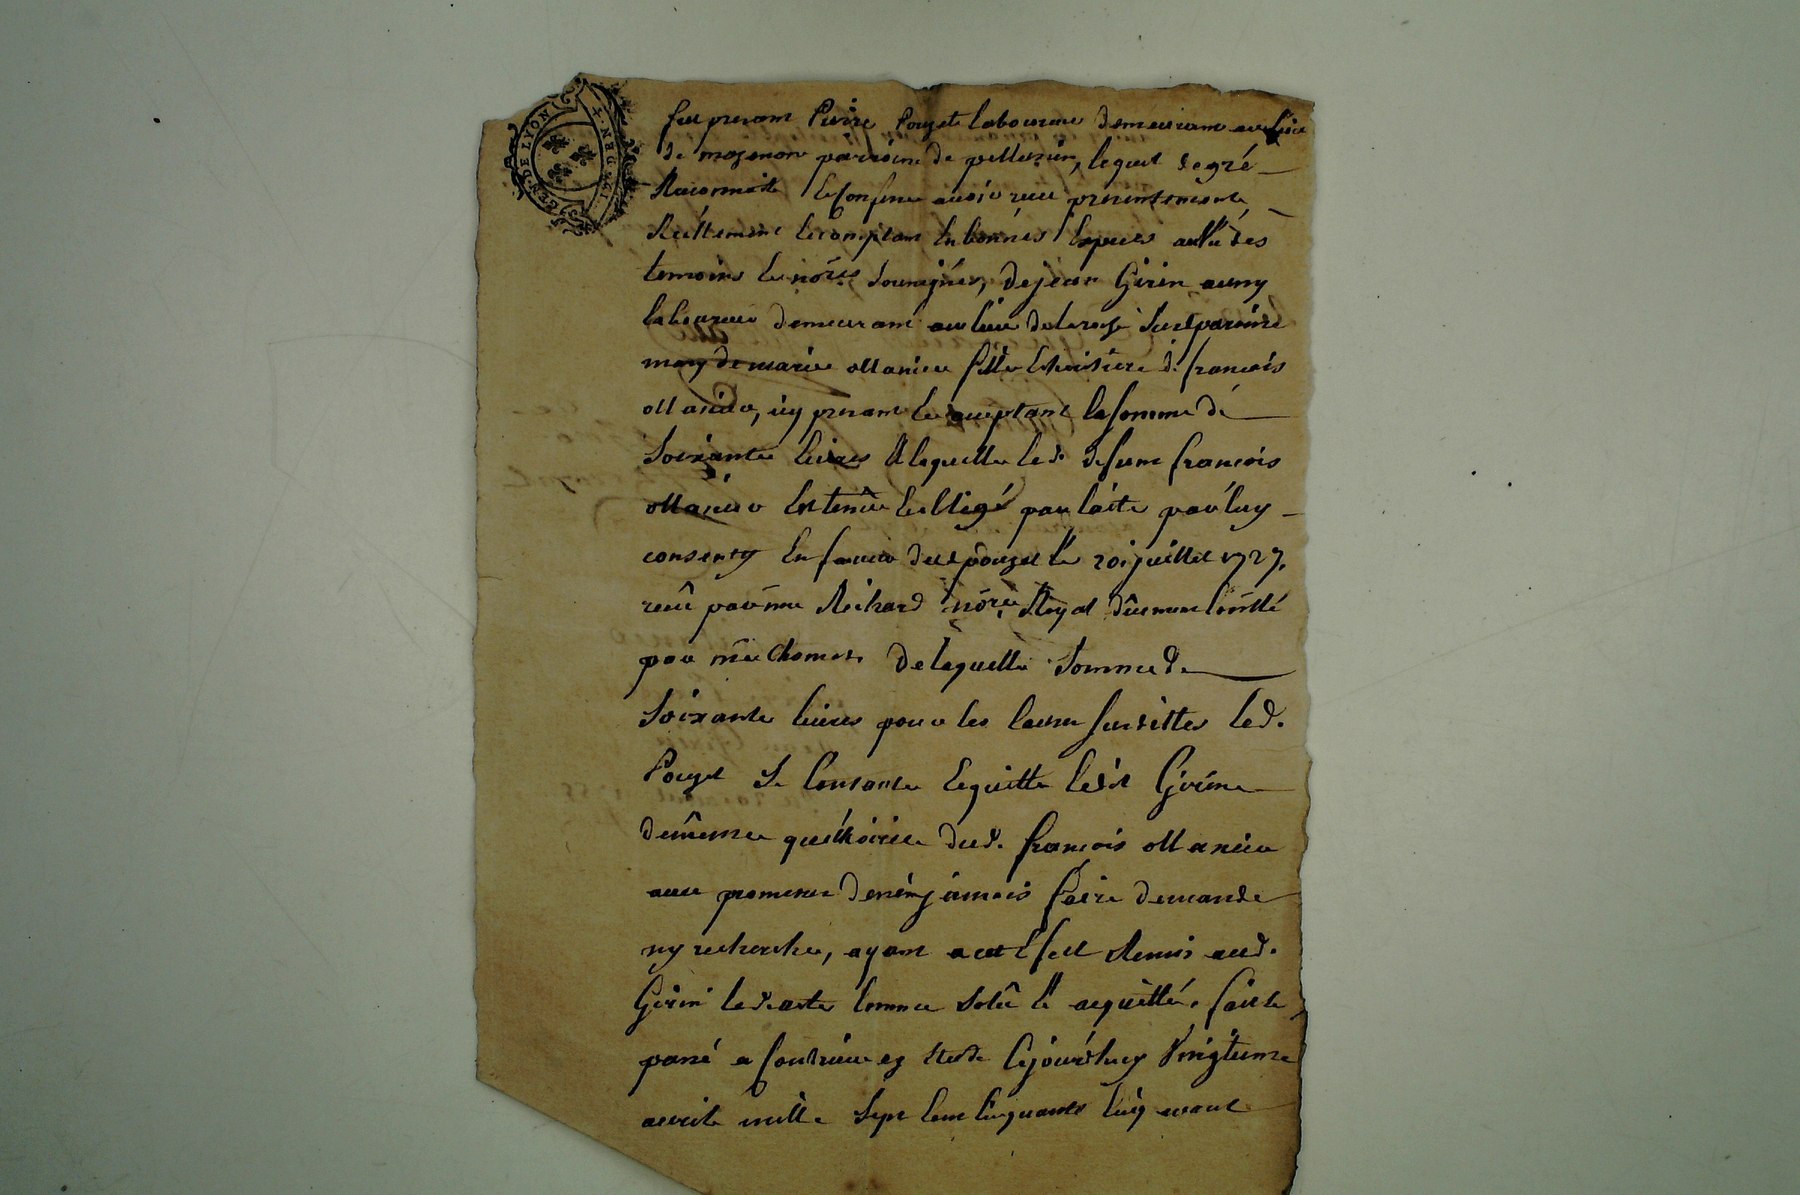 GEN·DE LYON
fut present Pierre Pouzet laboureur demeurant au lieu
de mozenon parroisse de pellussin, lequel de gré
Reconnoit & Confesse avoir reçu presentement
Réellement & comptant En bonnes Especes au Vû des
temoins & nôres. Soussignés, de jean Girin aussy
laboureur demeurant au lieu de Susd. parroisse
mary de marie ollanier fille & heritiere d. françois
ollanier, icy present & acceptant la somme de
Soixante livres A laquelle led. defunt françois
ollanier Est tenu & obligé par l'acte par luy
consenty En faveur dud pouzet le 20 juillet 1727.
reçû par me Richard nôre. Royal dûement Controllé
par me Chomat. de laquelle Somme de
Soixante livres pour les Causes susdittes led.
Pouzet Se Contente & quitte ledit Girin
de même que l'hoirie dud. françois ollanier
avec promesse de n'en jamais faire demande
ny recherche, ayant a cet Effet Remis aud.
Girin led. acte Comme Solû & acquitté. fait &
passé a Etude Cejourd'huy Vingt
avril mille Sept Cent Cinquante Cinq avant